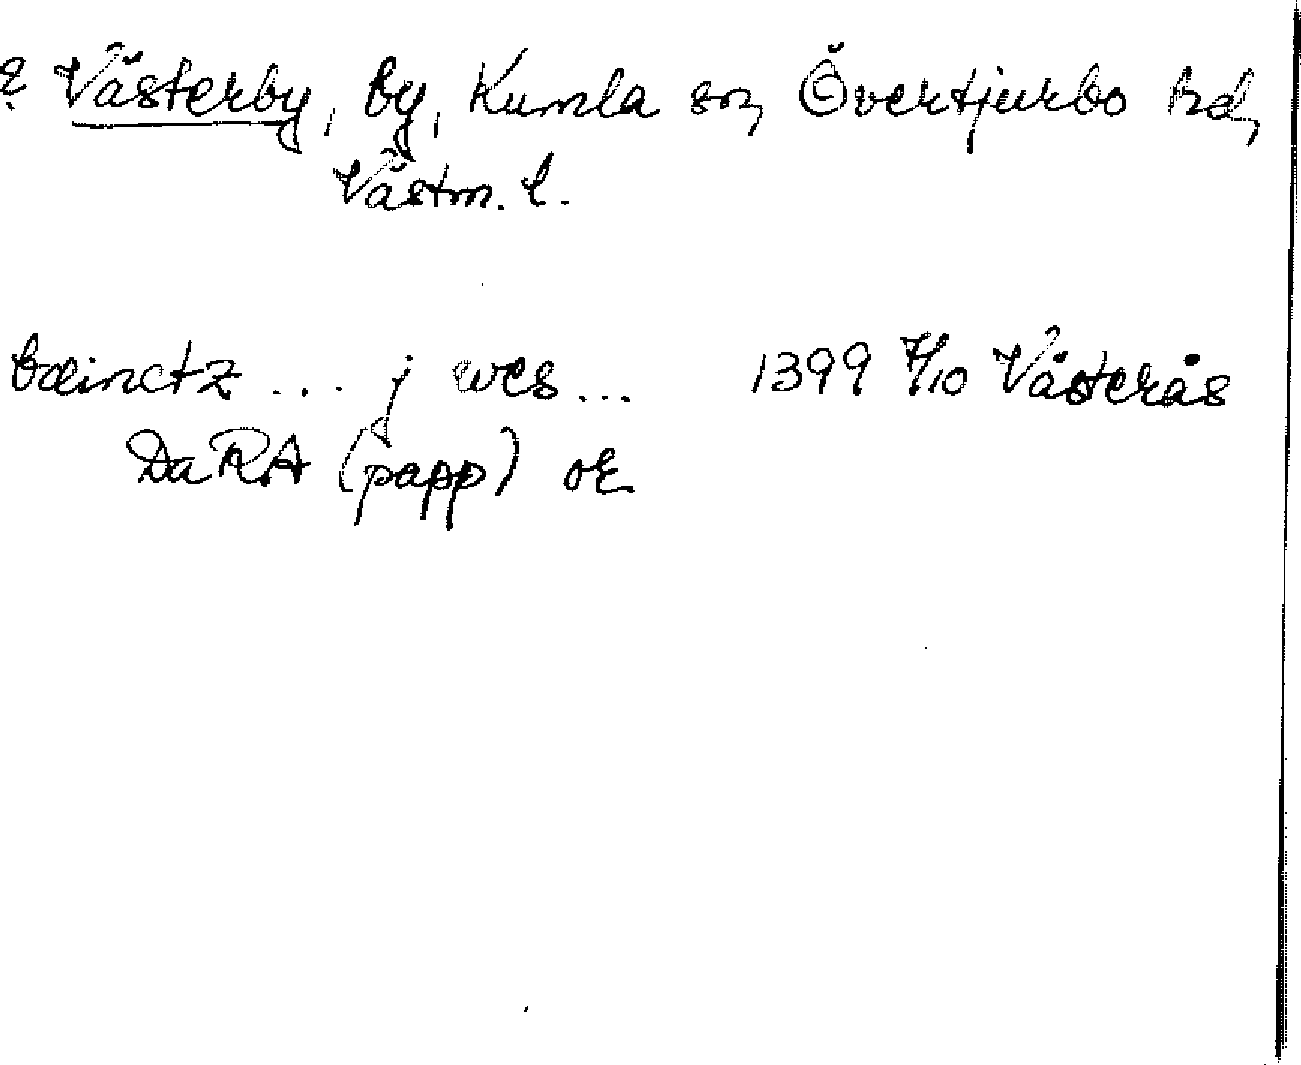 ? Västerby, by, Kumla sn, Övertjurbo hd,
Västm. l.
bæinctz ... j wes ... 1399 7/10 Västerås
DaRA (papp) or